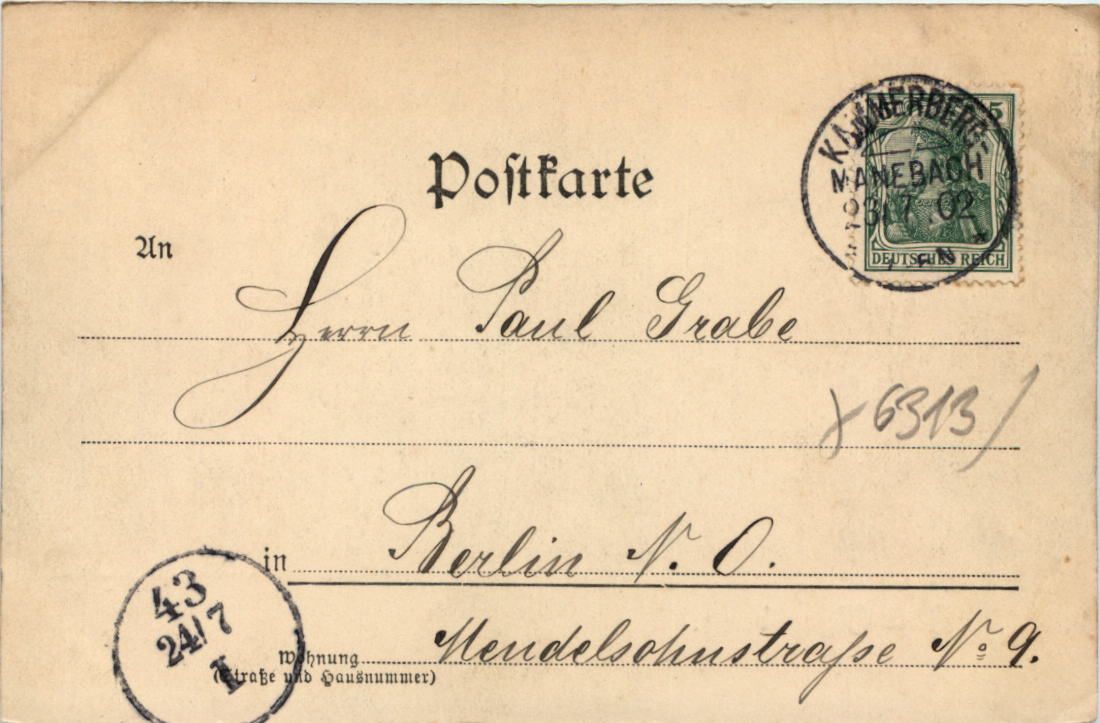 Postkarte
5
KAMMERBERG-
MANEBACH
23/7.02
N
DEUTSCHES REICH
An
Herrn Paul Grabe
6313
in Berlin N. O.
43
24/7
I
Mendelsohnstraße No 9.
Wohnung
(Straße und Hausnummer)